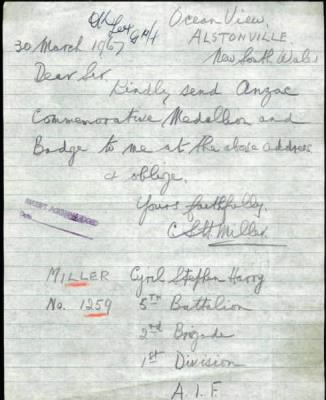 Ocean View,
ALSTONVILLE,
New South Wales
30 March 1967
Dear Sir
Kindly send Anzac
Commemorative Medallion and
Badge to me at the above address
& oblige.
Yours faithfully,
C S H Miller
MILLER Cyril Stephen Harry
No. 1259 5TH Battalion
2nd Brigade
1st Division
A.I.F.